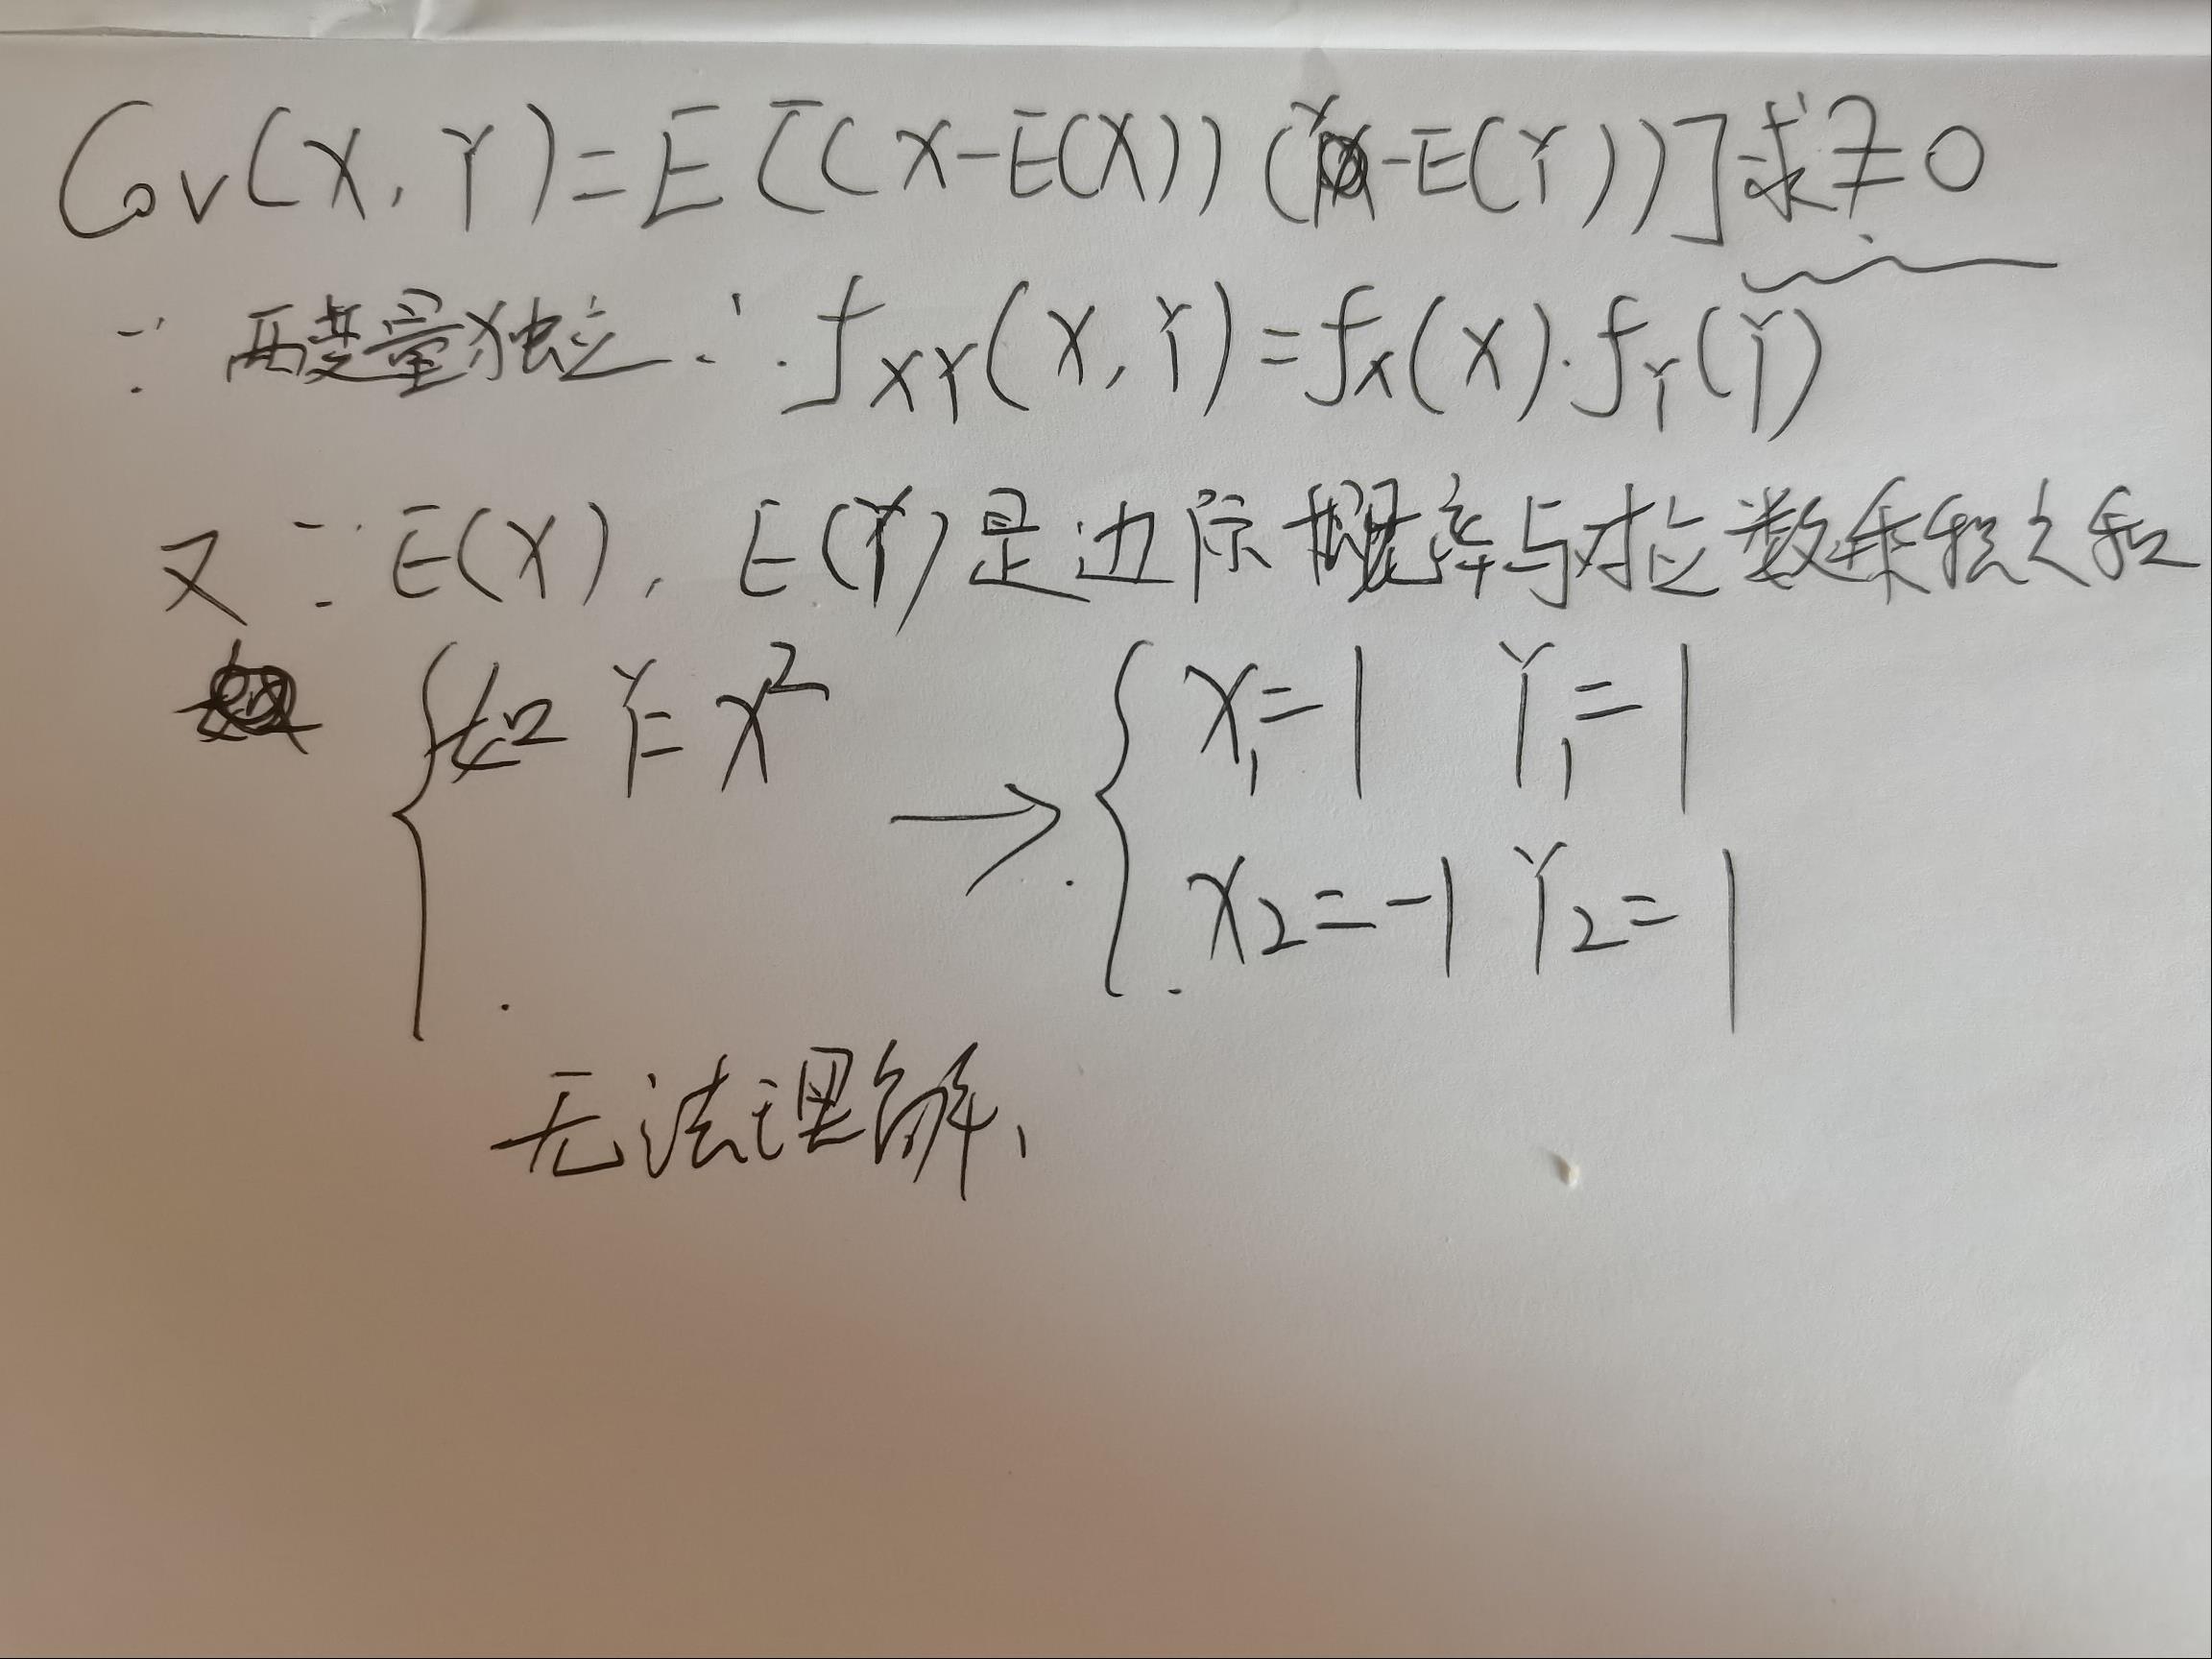 Cov(X,Y)=E[(X-E(X))(Y-E(Y))]求≠0
∵两变量独立∴fXY(X,Y)=fX(X)·fY(Y)
又∵E(X),E(Y)是边际概率与对应数乘积之和
如Y=X² → X₁=1 Y₁=1
X₂=-1 Y₂=1
无法理解、